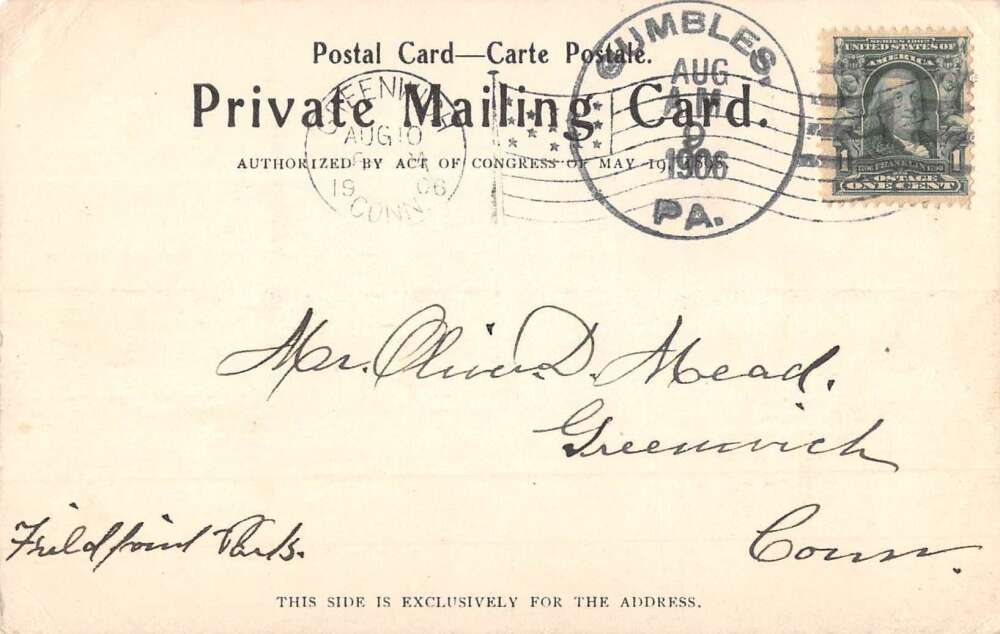 Postal Card—Carte Postale.
Private Mailing Card.
AUTHORIZED BY ACT OF CONGRESS OF MAY 19, 1898.
GREENWICH
AUG 10
1906
CONN.
GUMBLES,
AUG
A.M
9
1906
PA.
SERIES 1902
UNITED STATES OF
AMERICA
1 1
POSTAGE
ONE CENT
Mr. Oliver D. Mead.
Greenwich
Conn.
Field point Park.
THIS SIDE IS EXCLUSIVELY FOR THE ADDRESS.